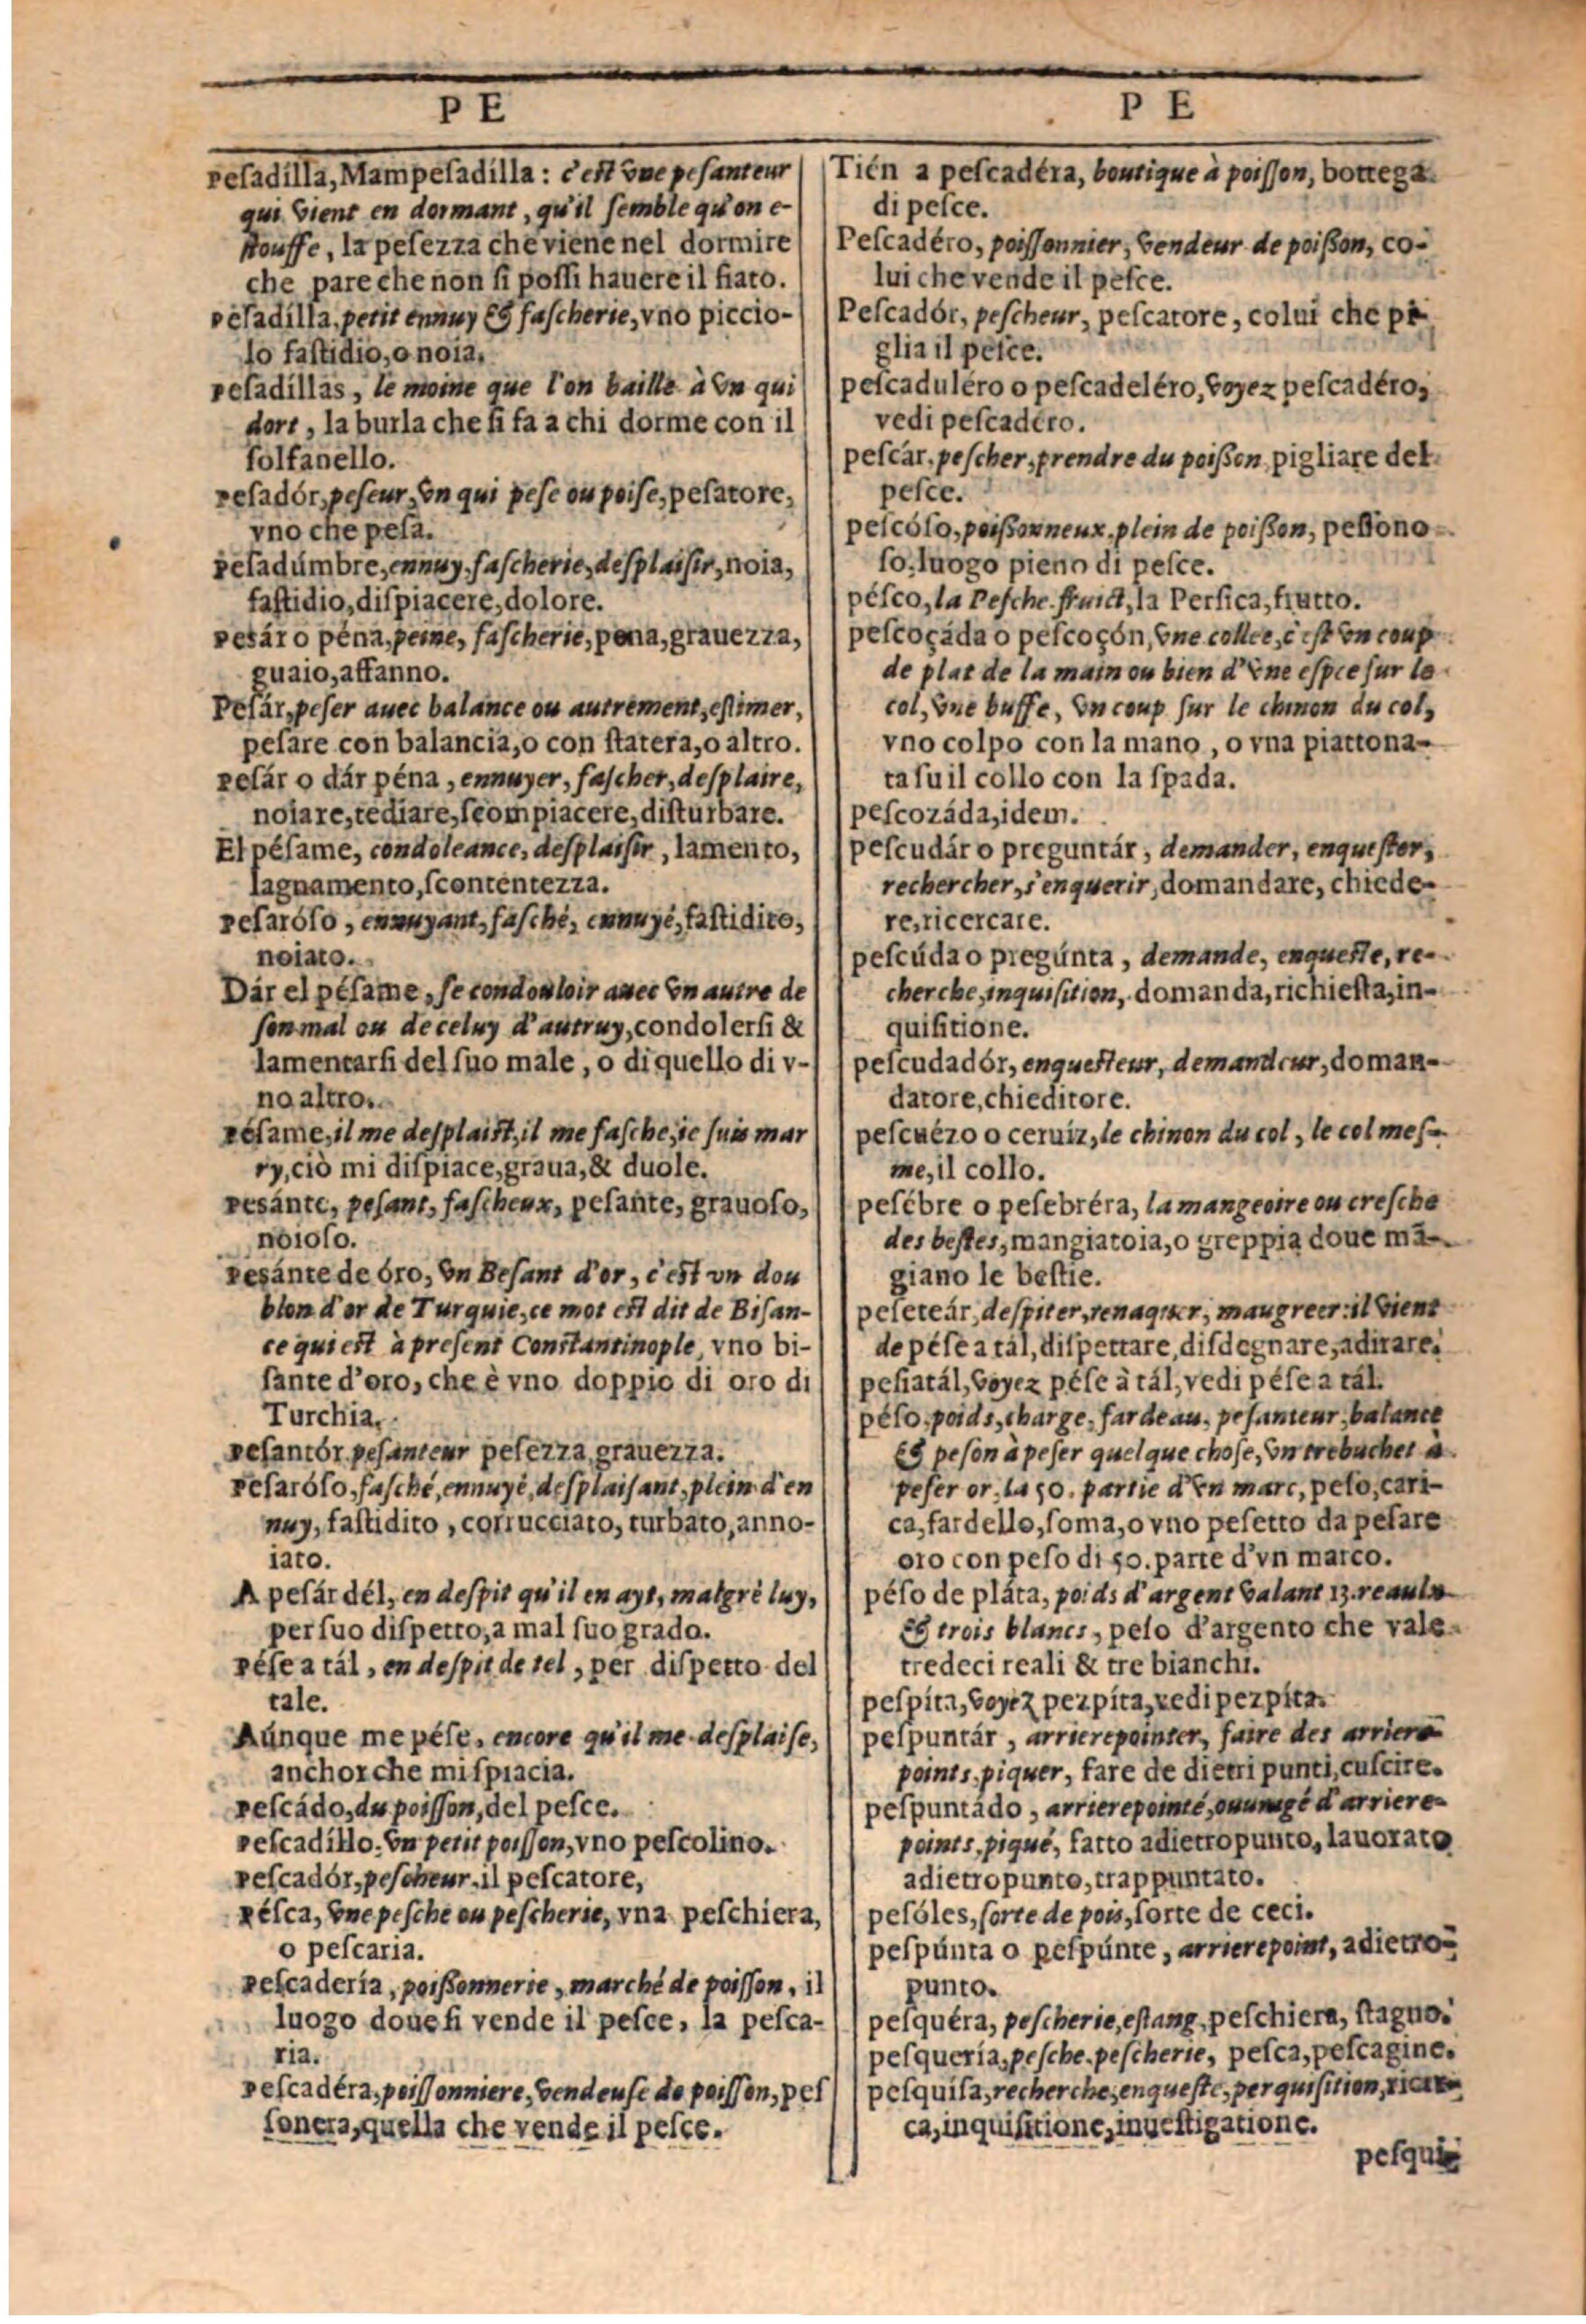 P E
peſadílla, Mampeſadílla : c'eſt vne peſanteur
qui vient en dormant, qu'il ſemble qu'on e-
ſtouffe, la peſezza che viene nel dormire
che pare che non ſi poſſi hauere il fiato.
peſadílla, petit ennuy & faſcherie, vno piccio-
lo faſtidio, o noia.
peſadíllas, le moine que l'on baille à vn qui
dort, la burla che ſi fa a chi dorme con il
ſolfanello.
peſadór, peſeur, vn qui peſe ou poiſe, peſatore,
vno che peſa.
peſadúmbre, ennuy, faſcherie, deſplaiſir, noia,
faſtidio, diſpiacere, dolore.
peſár o péna, peine, faſcherie, pena, grauezza,
guaio, affanno.
Peſár, peſer auec balance ou autrement, eſtimer,
peſare con balancia, o con ſtatera, o altro.
peſár o dár péna, ennuyer, faſcher, deſplaire,
noiare, tediare, ſcompiacere, diſturbare.
El péſame, condoleance, deſplaiſir, lamento,
lagnamento, ſcontentezza.
peſaróſo, ennuyant, faſché, ennuyé, faſtidito,
noiato.
Dár el péſame, ſe condouloir auec vn autre de
ſon mal ou de celuy d'autruy, condolerſi &
lamentarſi del ſuo male, o di quello di v-
no altro.
péſame, il me deſplaiſt, il me faſche, ie ſuis mar
ry, ciò mi diſpiace, graua, & duole.
peſánte, peſant, faſcheux, peſante, grauoſo,
noioſo.
peſánte de óro, vn Beſant d'or, c'eſt vn dou
blon d'or de Turquie, ce mot eſt dit de Biſan-
ce qui eſt à preſent Conſtantinople, vno bi-
ſante d'oro, che è vno doppio di oro di
Turchia.
peſantór peſanteur peſezza, grauezza.
peſaróſo, faſché, ennuyé, deſplaiſant, plein d'en
nuy, faſtidito, corrucciato, turbato, anno-
iato.
A peſár dél, en deſpit qu'il en ayt, malgré luy,
per ſuo diſpetto, a mal ſuo grado.
péſe a tál, en deſpit de tel, per diſpetto del
tale.
Aúnque me péſe, encore qu'il me deſplaiſe,
anchor che mi ſpiacia.
peſcádo, du poiſſon, del peſce.
peſcadíllo, vn petit poiſſon, vno peſcolino.
peſcadór, peſcheur, il peſcatore,
péſca, vne peſche ou peſcherie, vna peſchiera,
o peſcaria.
peſcadería, poiſſonnerie, marché de poiſſon, il
luogo doue ſi vende il peſce, la peſca-
ria.
peſcadéra, poiſſonniere, vendeuſe de poiſſon, peſ
ſonera, quella che vende il peſce.
P E
Tién a peſcadéra, boutique à poiſſon, bottega
di peſce.
Peſcadéro, poiſſonnier, vendeur de poiſſon, co-
lui che vende il peſce.
Peſcadór, peſcheur, peſcatore, colui che pi-
glia il peſce.
peſcaduléro o peſcadeléro, voyez peſcadéro,
vedi peſcadéro.
peſcár, peſcher, prendre du poiſſon pigliare del
peſce.
peſcóſo, poiſſonneux, plein de poiſſon, peſſono
ſo, luogo pieno di peſce.
péſco, la Peſche fruict, la Perſica, frutto.
peſcoçáda o peſcoçón, vne collee, c'eſt vn coup
de plat de la main ou bien d'vne eſpee ſur le
col, vne buffe, vn coup ſur le chinon du col,
vno colpo con la mano, o vna piattona-
ta ſu il collo con la ſpada.
peſcozáda, idem.
peſcudár o preguntár, demander, enqueſter,
rechercher, s'enquerir, domandare, chiede-
re, ricercare.
peſcúda o pregúnta, demande, enqueſte, re-
cherche, inquiſition, domanda, richieſta, in-
quiſitione.
peſcudadór, enqueſteur, demandeur, doman-
datore, chieditore.
peſcuézo o ceruíz, le chinon du col, le col meſ-
me, il collo.
peſébre o peſebréra, la mangeoire ou creſche
des beſtes, mangiatoia, o greppia doue mã-
giano le beſtie.
peſeteár, deſpiter, renaquer, maugreer: il vient
de péſe a tál, diſpettare, diſdegnare, adirare.
peſiatál, voyez péſe à tál, vedi péſe a tál.
péſo, poids, charge, fardeau, peſanteur, balance
& peſon à peſer quelque choſe, vn trebuchet à
peſer or, la 50. partie d'vn marc, peſo, cari-
ca, fardello, ſoma, o vno peſetto da peſare
oro con peſo di 50. parte d'vn marco.
péſo de pláta, poids d'argent valant 13. reauls
& trois blancs, peſo d'argento che vale
tredeci reali & tre bianchi.
peſpíta, voyez pezpíta, vedi pezpíta.
peſpuntár, arrierepointer, faire des arriere
points, piquer, fare de dietri punti, cuſcire.
peſpuntádo, arrierepointé, ouuragé d'arriere-
points, piqué, fatto adietropunto, lauorato
adietropunto, trappuntato.
peſóles, ſorte de pois, ſorte de ceci.
peſpúnta o peſpúnte, arrierepoint, adietro-
punto.
peſquéra, peſcherie, eſtang, peſchiera, ſtagno.
peſquería, peſche, peſcherie, peſca, peſcagine.
peſquíſa, recherche, enqueſte, perquiſition, ricer-
ca, inquiſitione, inueſtigatione.
peſqui-